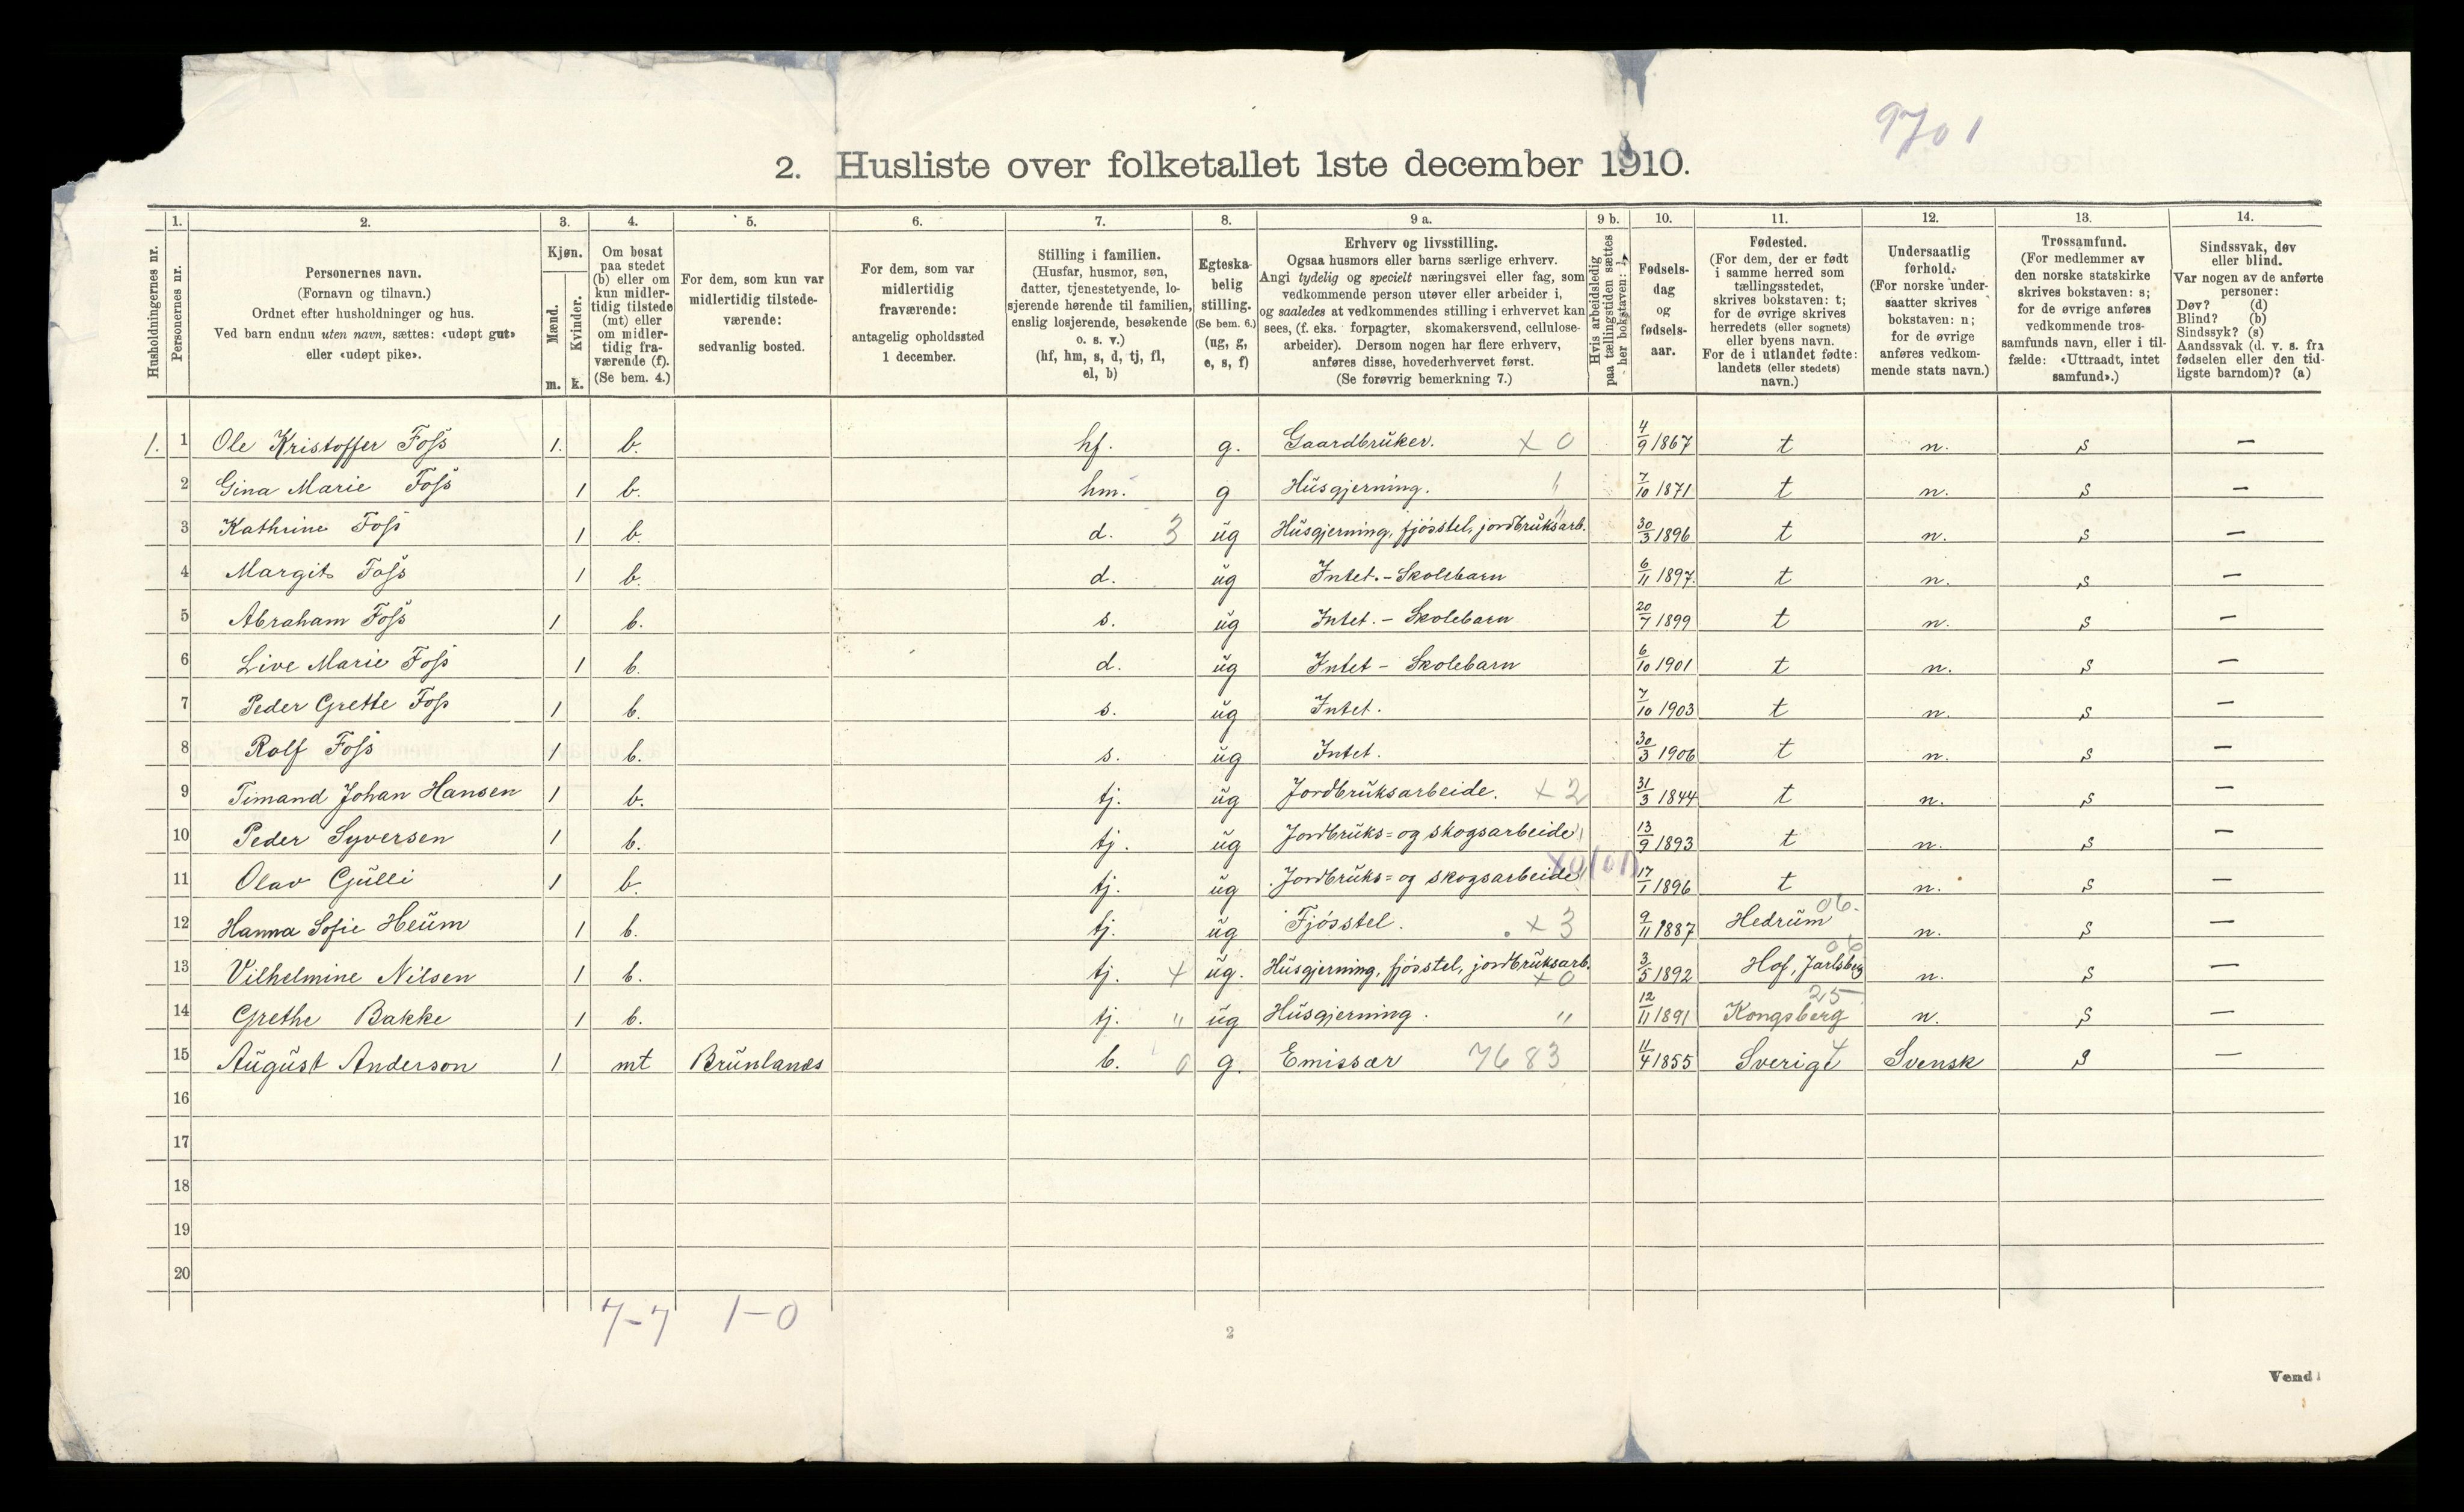 9701
2. Husliste over folketallet 1ste december 1910.
1. 2. 3. 4. 5. 6. 7. 8. 9 a. 9 b. 10. 11. 12. 13. 14.
Husholdningernes nr.
Personernes nr.
Personernes navn.
(Fornavn og tilnavn.)
Ordnet efter husholdninger og hus.
Ved barn endnu uten navn, sættes: «udøpt gut»
eller «udøpt pike».
Kjøn.
Mænd.
Kvinder.
m. k.
Om bosat
paa stedet
(b) eller om
kun midler-
tidig tilstede
(mt) eller
om midler-
tidig fra-
værende (f).
(Se bem. 4.)
For dem, som kun var
midlertidig tilstede-
værende:
sedvanlig bosted.
For dem, som var
midlertidig
fraværende:
antagelig opholdssted
1 december.
Stilling i familien.
(Husfar, husmor, søn,
datter, tjenestetyende, lo-
sjerende hørende til familien,
enslig losjerende, besøkende
o. s. v.)
(hf, hm, s, d, tj, fl,
el, b)
Egteska-
belig
stilling.
(Se bem. 6.)
(ug, g,
e, s, f)
Erhverv og livsstilling.
Ogsaa husmors eller barns særlige erhverv.
Angi tydelig og specielt næringsvei eller fag, som
vedkommende person utøver eller arbeider i,
og saaledes at vedkommendes stilling i erhvervet kan
sees, (f. eks. forpagter, skomakersvend, cellulose-
arbeider). Dersom nogen har flere erhverv,
anføres disse, hovederhvervet først.
(Se forøvrig bemerkning 7.)
Hvis arbeidsledig
paa tællingstiden sættes
her bokstaven: l.
Fødsels-
dag
og
fødsels-
aar.
Fødested.
(For dem, der er født
i samme herred som
tællingsstedet,
skrives bokstaven: t;
for de øvrige skrives
herredets (eller sognets)
eller byens navn.
For de i utlandet fødte:
landets (eller stedets)
navn.)
Undersaatlig
forhold.
(For norske under-
saatter skrives
bokstaven: n;
for de øvrige
anføres vedkom-
mende stats navn.)
Trossamfund.
(For medlemmer av
den norske statskirke
skrives bokstaven: s;
for de øvrige anføres
vedkommende tros-
samfunds navn, eller i til-
fælde: «Uttraadt, intet
samfund».)
Sindssvak, døv
eller blind.
Var nogen av de anførte
personer:
Døv? (d)
Blind? (b)
Sindssyk? (s)
Aandssvak (d. v. s. fra
fødselen eller den tid-
ligste barndom)? (a)
1. 1 Ole Kristoffer Foss 1. b. hf. g. Gaardbruker. x 0 4/9 1867 t n. s —
2 Gina Marie Foss 1 b. hm. g Husgjerning. " 7/10 1871 t n. s —
3 Kathrine Foss 1 b. d. 3 ug Husgjerning, fjøsstel, jordbruksarb. " 30/3 1896 t n. s —
4 Margit Foss 1 b. d. ug Intet. - Skolebarn 6/11 1897. t n. s —
5 Abraham Foss 1 b. s. ug Intet. - Skolebarn 20/7 1899 t n. s —
6 Live Marie Foss 1 b. d. ug Intet - Skolebarn 6/10 1901 t n. s —
7 Peder Grette Foss 1 b. s. ug Intet. 7/10 1903 t n. s —
8 Rolf Foss 1 b. s. ug Intet. 30/3 1906 t n. s —
9 Timand Johan Hansen 1 b. tj. ug Jordbruksarbeide. x 2 31/3 1844 t n. s —
10 Peder Syversen 1 b. tj. ug Jordbruks= og skogsarbeide 13/9 1893 t n. s —
11 Olav Gulli 1 b. tj. ug Jordbruks= og skogsarbeide 17/1 1896 t n. s —
12 Hanna Sofie Heum 1 b. tj. ug Fjøsstel. x 3 9/11 1887 Hedrum 06. n. s —
13 Vilhelmine Nilsen 1 b. tj. x ug. Husgjerning, fjøsstel, jordbruksarb. x 0 3/5 1892 Hof, Jarlsberg 06 n. s —
14 Grethe Bakke 1 b. tj. " ug Husgjerning. " 12/11 1891 Kongsberg 25 n. s —
15 August Anderson 1 mt Brunlanes b. 0 g. Emissær 7683 11/4 1855 Sverige 4 Svensk s —
16
17
18
19
20
7-7 1-0
2
Vend!